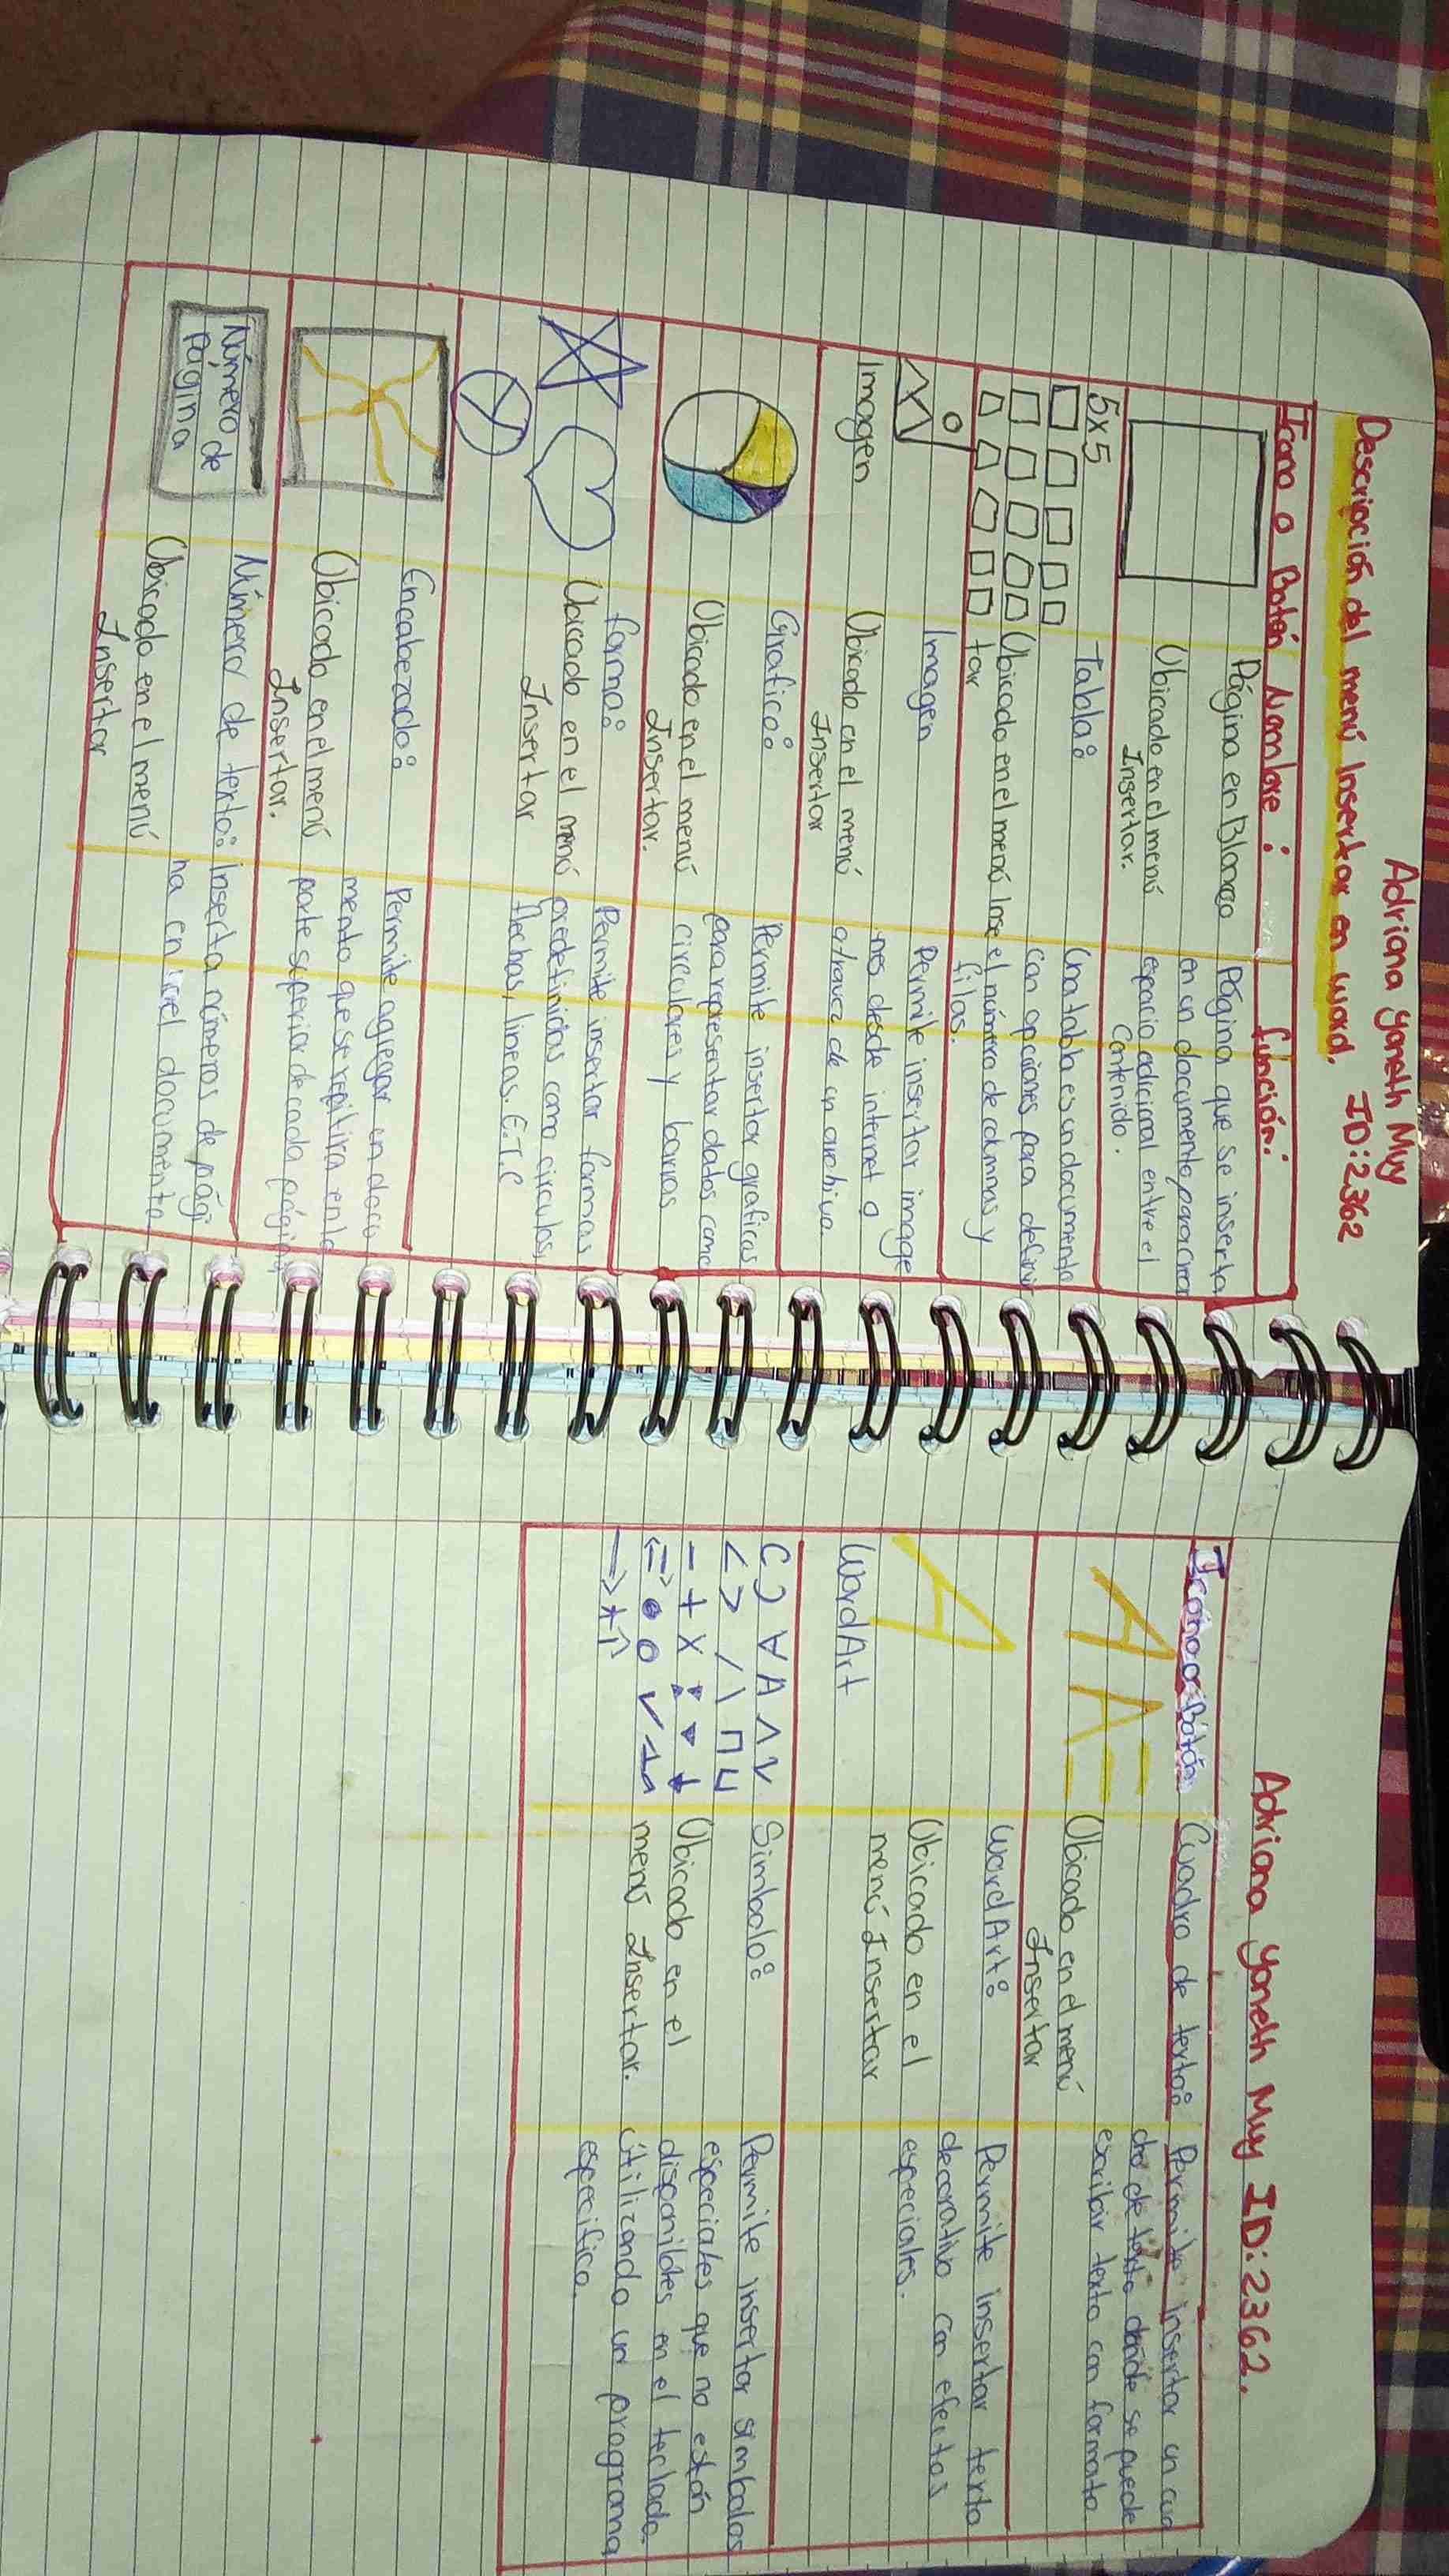 Adriana Yaneth Muy
ID:2362
Descripción del menú Insertar en word.
Icono o Botón Nombre : función:
Página en Blanco
Ubicado en el menú
Insertar.
Página que se inserta
en un documento para crear
espacio adicional entre el
Contenido.
5x5
Tabla:
Ubicado en el menú Inser
tar
Una tabla es un documento
con opciones para definir
el número de columnas y
filas.
Imagen
Imagen
Ubicado en el menú
Insertar
Permite insertar image
nes desde internet o
atravez de un archivo.
Grafico:
Ubicado en el menú
Insertar.
Permite insertar graficos
para representar datos como
circulares y barras
forma:
Ubicado en el menú
Insertar
Permite insertar formas
predefinidas como circulos,
flechas, lineas. E.T.C
Encabezado:
Ubicado en el menú
Insertar.
Permite agregar un docu
mento que se repitira en la
parte superior de cada página
Número de
página
Número de texto:
Ubicado en el menú
Insertar
Inserta números de pági
na en el documento
Adriana Yaneth Muy ID:2362.
Icono o Botón
A A
Cuadro de texto:
Ubicado en el menú
Insertar
Permite insertar un cua
dro de texto donde se puede
escribir texto con formato
A
WordArt
WordArt:
Ubicado en el
menú Insertar
Permite insertar texto
decorativo con efectos
especiales.
Simbolo:
Ubicado en el
menú Insertar.
Permite insertar simbolos
especiales que no están
disponibles en el teclado
Utilizando un programa
especifico.